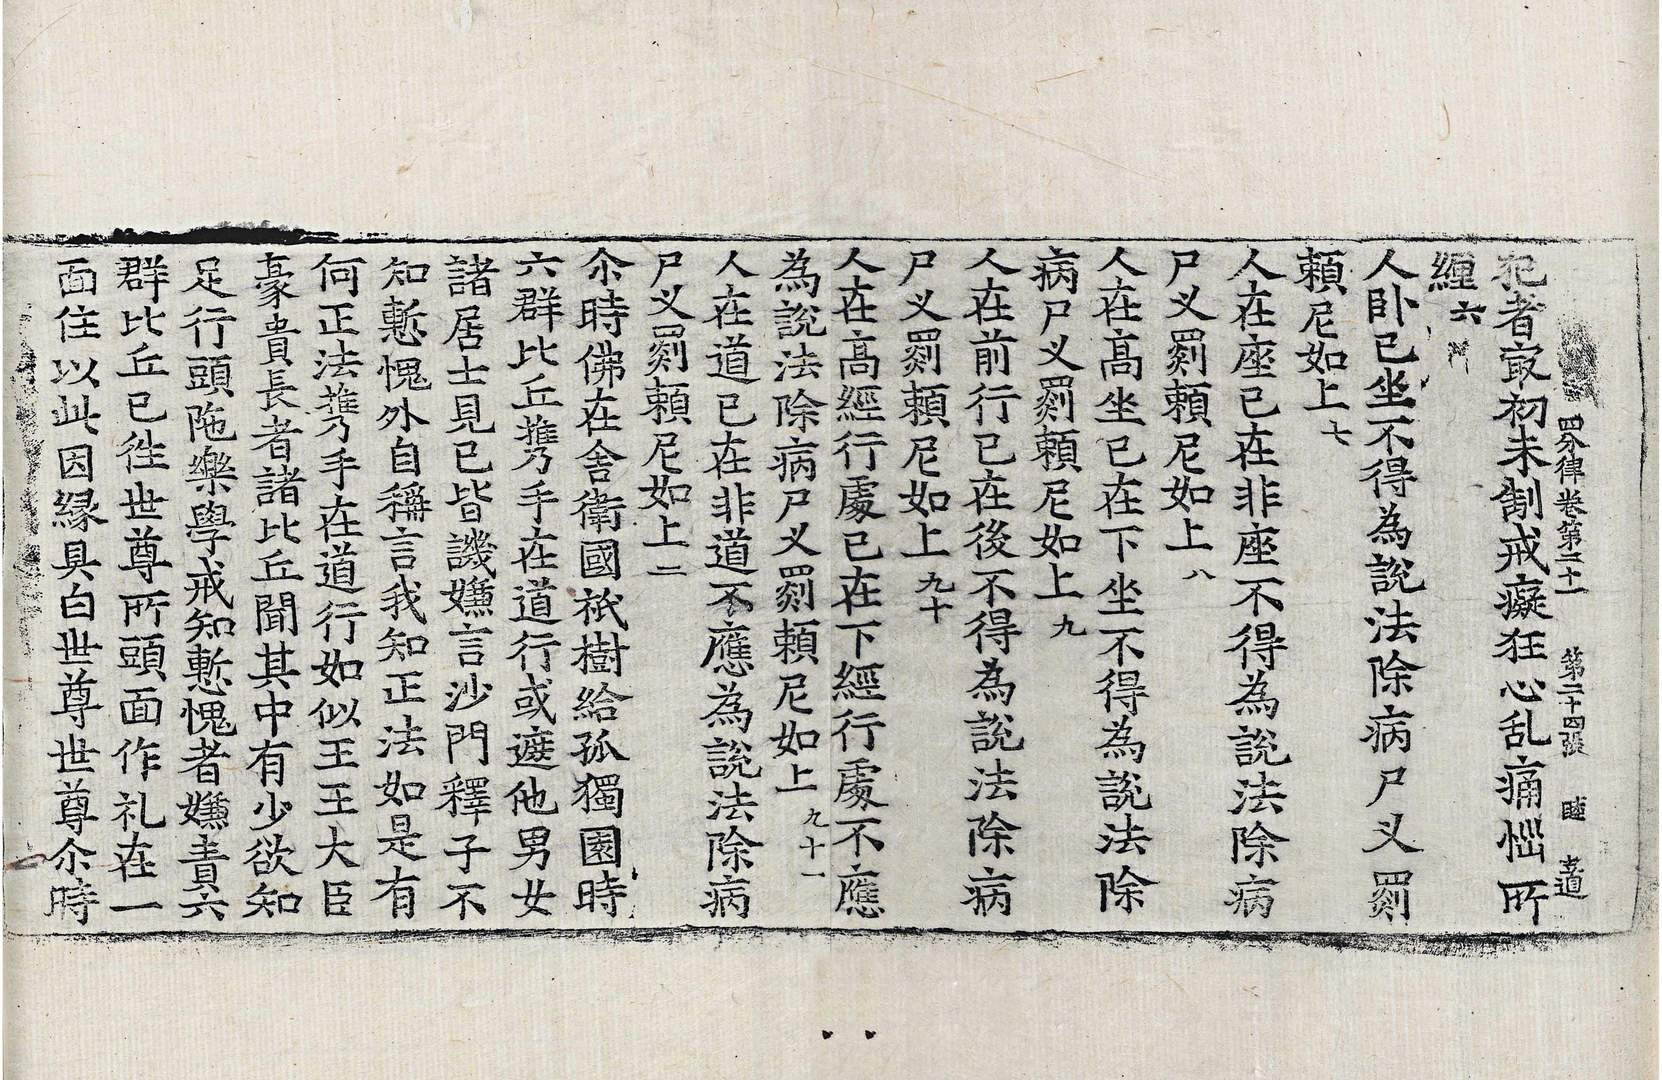 四分律卷第二十一 第二十四張 睦 孝道
犯者㝡初未制戒癡狂心乱痛惱所
纏六
人卧已坐不得為說法除病尸叉罽
賴尼如上七
人在座已在非座不得為說法除病
尸叉罽賴尼如上八
人在高坐已在下坐不得為說法除
病尸叉罽賴尼如上九
人在前行已在後不得為說法除病
尸叉罽賴尼如上九十
人在高經行處已在下經行處不應
為說法除病尸叉罽賴尼如上九十一
人在道已在非道不應為說法除病
尸叉罽賴尼如上二
尒時佛在舍衛國祇樹給孤獨園時
六群比丘㩗手在道行或遮他男女
諸居士見已皆譏嫌言沙門釋子不
知慙愧外自稱言我知正法如是有
何正法㩗手在道行如似王王大臣
豪貴長者諸比丘聞其中有少欲知
足行頭陁樂學戒知慙愧者嫌責六
群比丘已徃世尊所頭面作礼在一
面住以此因縁具白世尊世尊尒時